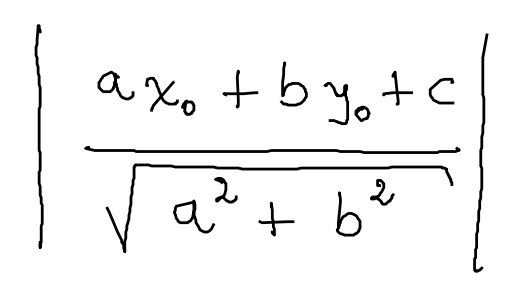 | (a x₀ + b y₀ + c) / √(a² + b²) |